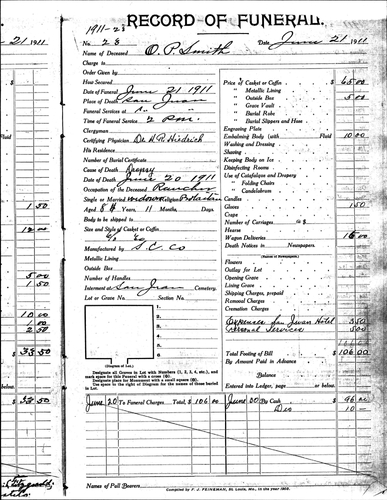 1911-28
RECORD OF FUNERAL.
21 1911
No. 28 O. P. Smith Date June 21 1911
Name of Deceased
Charge to
Order Given by
How Secured
Date of Funeral June 21 1911
Place of Death San Juan
Funeral Services at
Time of Funeral Service 2 P.M.
Clergyman
Certifying Physician Dr. H. R.
His Residence
Number of Burial Certificate
Cause of Death Dropsy
Date of Death June 20 1911
Occupation of the Deceased Rancher
Single or Married widower Religion
Aged 84 Years, 11 Months, Days.
Body to be shipped to
Size and Style of Casket or Coffin
Manufactured by S. C. Co
Metallic Lining
Outside Box
Number of Handles
Interment at San Juan Cemetery.
Lot or Grave No. Section No.
1.
2.
3.
4.
5.
6.
7.
8.
(Diagram of Lot.)
Designate all Graves in Lot with Numbers (1, 2, 3, 4, etc.), and
mark space for this Funeral with a cross
Designate place for Monument with a small square
Use space to the right of Diagram for names of those buried
in Lot.
June 20 To Funeral Charges $ 106 00
Names of Pall Bearers
Price of Casket or Coffin $ 65 00
" Metallic Lining
" Outside Box 5 00
" Grave Vault
" Burial Robe
" Burial Slippers and Hose
Engraving Plate
Embalming Body (with Fluid) 10 00
Washing and Dressing
Shaving
Keeping Body on Ice
Disinfecting Rooms
Use of Catafalque and Drapery
" Folding Chairs
" Candelabrum
Candles
Gloves 1 50
Crape
Number of Carriages @ $
Hearse
Wagon Deliveries 16 00
Death Notices in Newspapers.
Flowers
Outlay for Lot
Opening Grave
Lining Grave
Shipping Charges, prepaid
Removal Charges
Cremation Charges
Expenses San Juan Hotel 3 50
Personal Services 5 00
Total Footing of Bill $ 106 00
By Amount Paid in Advance
Balance
Entered into Ledger, page or below.
June 20 By Cash $ 96 00
Dis 10
Compiled by F. J. FEINEMAN, St. Louis, Mo.
Fluid
1 50
5 00
1 50
10 00
1 00
2 50
33 50